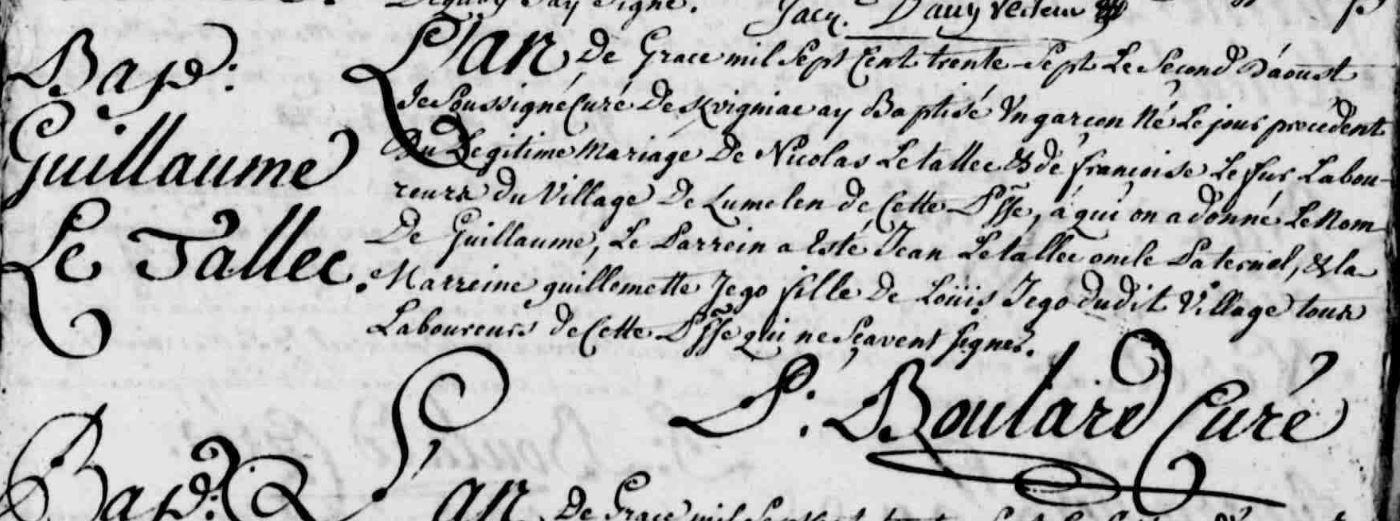 Jay signé. Jacq. Davy
Bap:
Guillaume
Le Tallec.
L'an de Grace mil Sept Cent trente-Sept Le Second D'aoust
Je Soussigné Curé De Kvigniac ay Baptisé Un garcon Né Le jour precedent
Du Legitime Mariage De Nicolas Le tallec & de francoise Le fur Labou-
reurs du Village De Lumelen de Cette Psse, à qui on a donné Le Nom
De Guillaume, Le Parrein a Esté Jean Le tallec oncle Paternel, & la
Marreine guillemette Jego fille De Loüis Jego dudit Village tous
Laboureurs de Cette Psse qui ne Sçavent signer.
P. Boulard Curé
Bap:
L'an De Grace mil Sept